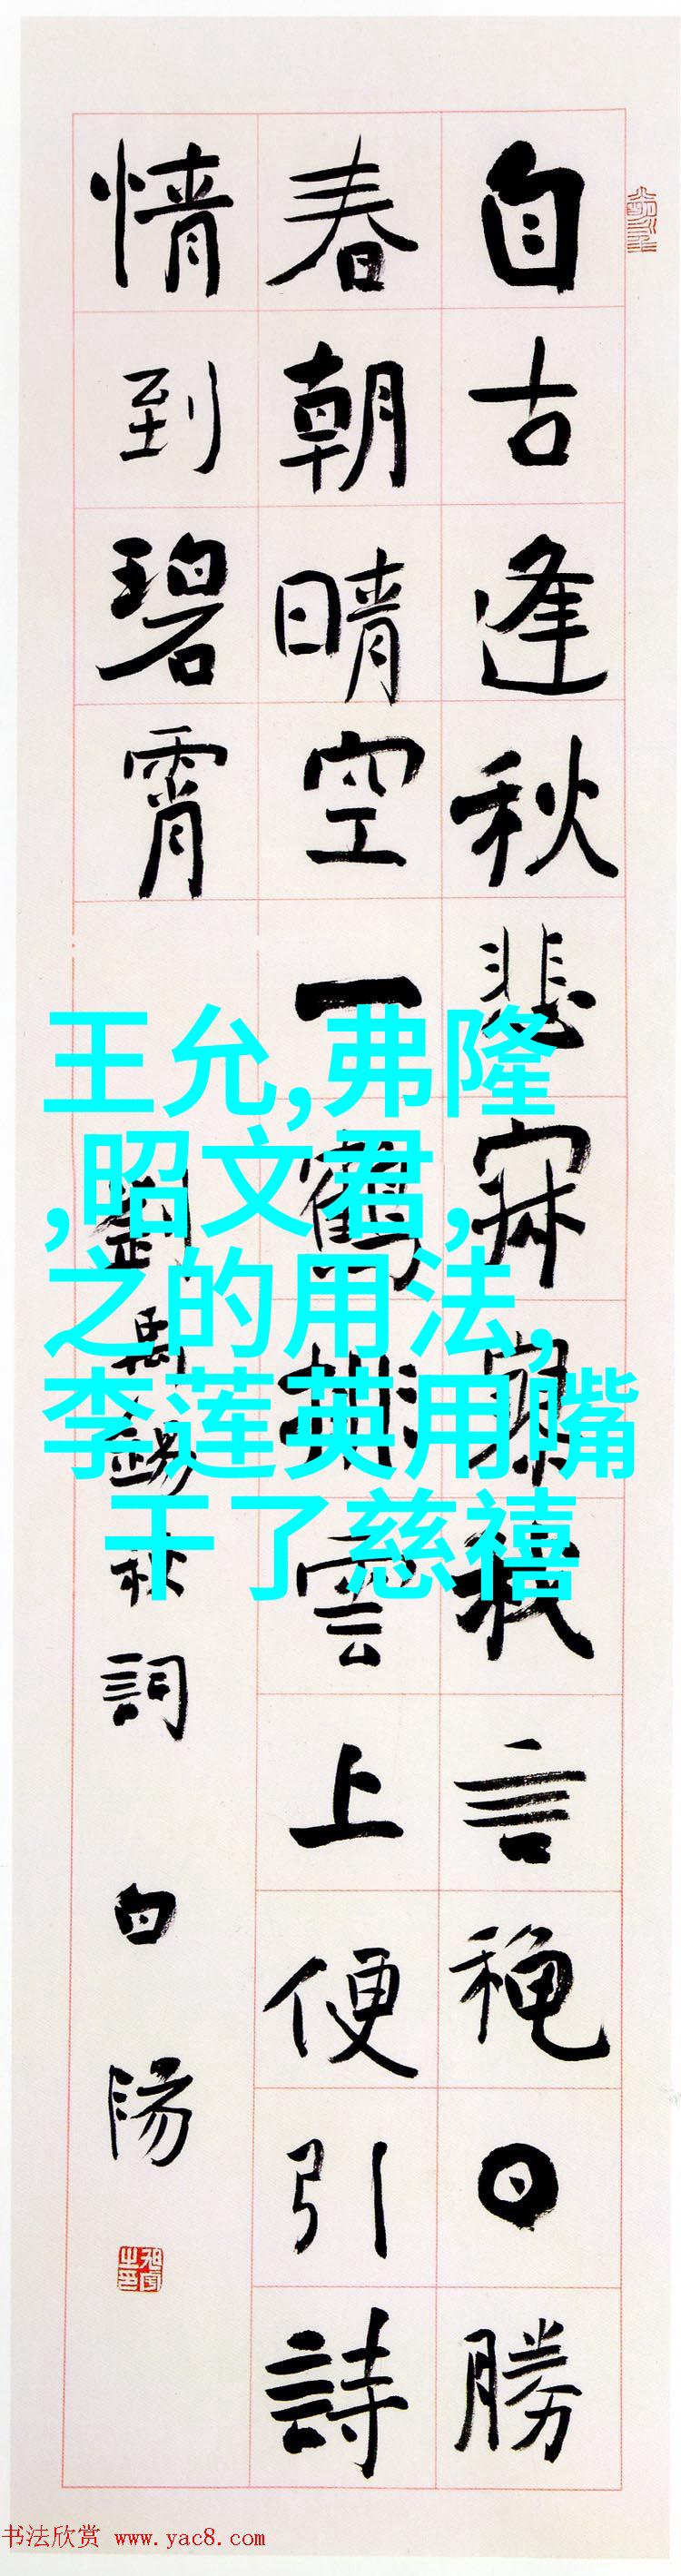 自古逢秋悲寂寥我言秋日勝
春朝晴空一鶴排雲上便引詩
情到碧霄
劉禹錫秋詞 白陽
王允,弗隆
,昭文君,
之的用法,
李莲英用嘴
干了慈禧
书法欣赏 www.yac8.com